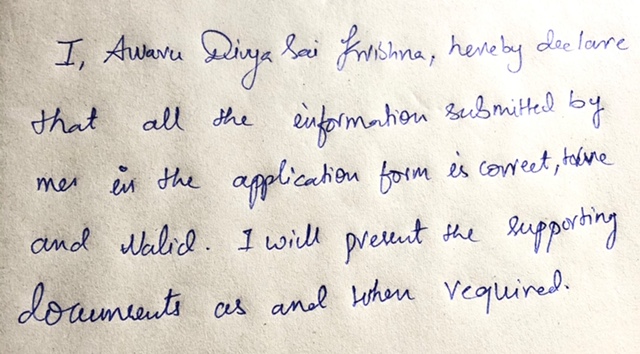 I, Awavu Divya Sai Krishna, hereby declare
that all the information submitted by
me in the application form is correct, true
and Valid. I will present the supporting
documents as and when required.